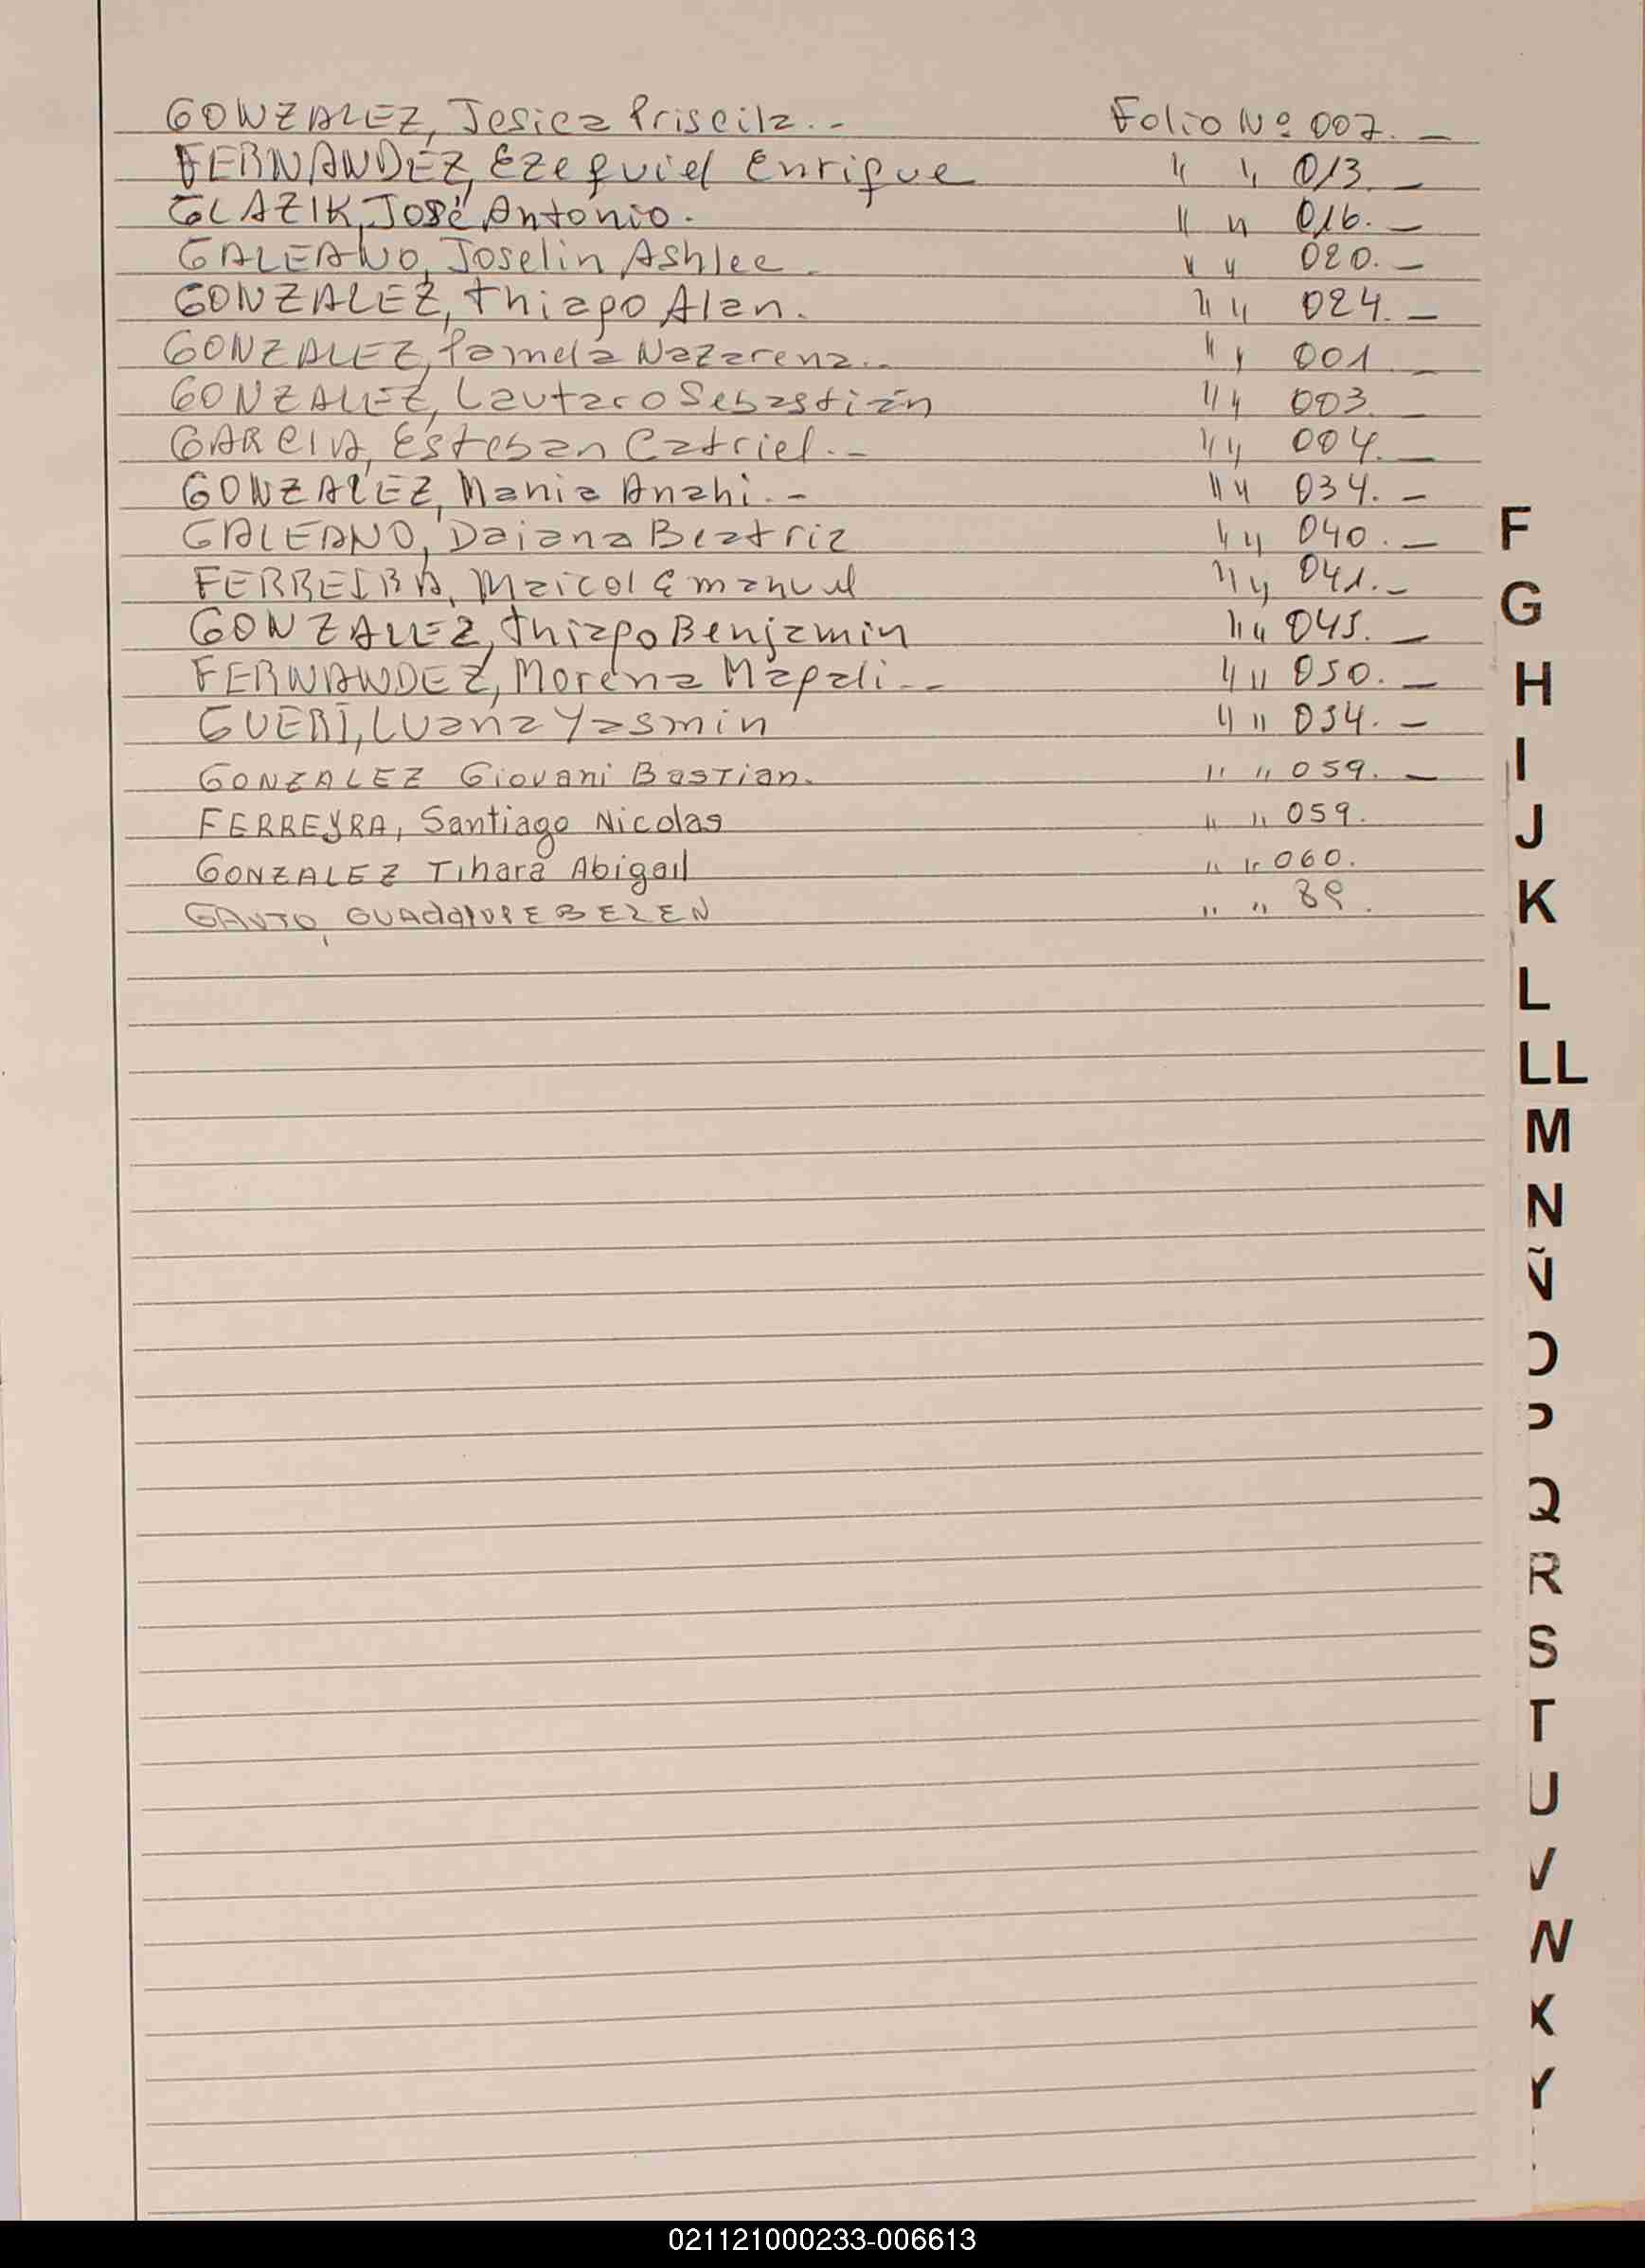 GONZALEZ, Jesica Priscila.- Folio Nº 007.-
FERNANDEZ, Ezequiel Enrique " " 013.-
GLAZIK, José Antonio. " " 016.-
GALEANO, Joselin Ashlee. " " 020.-
GONZALEZ, Thiago Alan. " " 024.-
GONZALEZ, Pamela Nazarena.- " " 001.-
GONZALEZ, Lautaro Sebastián " " 003.-
GARCIA, Esteban Catriel.- " " 004.-
GONZALEZ, Mania Anahi.- " " 034.-
GALEANO, Daiana Beatriz " " 040.-
FERREIRA, Maicol Emanuel " " 041.-
GONZALEZ, Thiago Benjamin " " 045.-
FERNANDEZ, Morena Magali.- " " 050.-
GUERI, Luana Yasmin " " 054.-
GONZALEZ Giovani Bastian. " " 059.-
FERREYRA, Santiago Nicolas " " 059.
GONZALEZ Tihara Abigail " " 060.
GAUTO, GUAdalUPE BELEN " " 89.
F
G
H
I
J
K
L
LL
M
N
Ñ
O
P
Q
R
S
T
U
V
W
X
Y
021121000233-006613